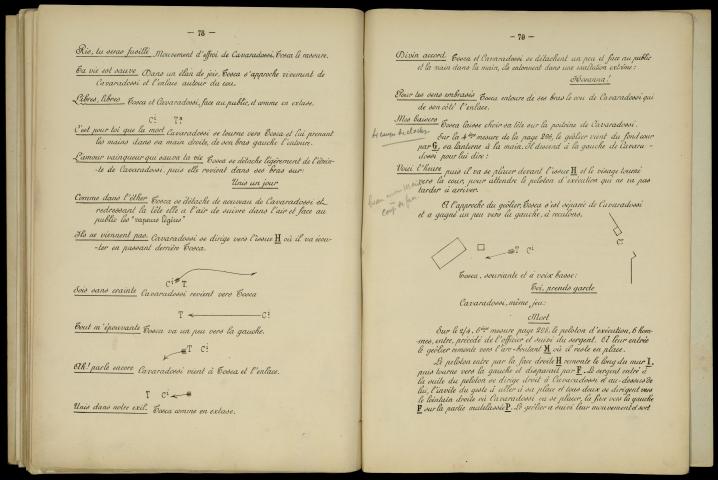 — 78 —
Ris, tu seras fusillé. Mouvement d'effroi de Cavaradossi, Tosca le rassure.
Ta vie est sauve Dans un élan de joie, Tosca s'approche vivement de
Cavaradossi et l'enlace autour du cou.
Libres, libres Tosca et Cavaradossi, face au public, et comme en extase.
Ci T.
C'est pour toi que la mort Cavaradossi se tourne vers Tosca et lui prenant
les mains dans sa main droite, de son bras gauche l'entoure.
L'amour vainqueur qui sauva ta vie Tosca se détache légèrement de l'étrein-
-te de Cavaradossi, puis elle revient dans ses bras sur:
Unis un jour
Comme dans l'éther. Tosca se détache de nouveau de Cavaradossi et
redressant la tête elle a l'air de suivre dans l'air et face au
public les "vapeurs légères"
Ils ne viennent pas. Cavaradossi se dirige vers l'issue H où il va écou-
-ter en passant derrière Tosca.
Ci T
Sois sans crainte Cavaradossi revient vers Tosca
T Ci
Tout m'épouvante Tosca va un peu vers la gauche.
T Ci
Ah! parle encore Cavaradossi vient à Tosca et l'enlace.
T Ci
Unis dans notre exil. Tosca comme en extase.
— 79 —
Divin accord. Tosca et Cavaradossi se détachent un peu et face au public
et la main dans la main, ils entonnent dans une exaltation extrême:
Hosanna!
Pour tes sens embrasés Tosca entoure de ses bras le cou de Cavaradossi qui
de son côté l'enlace.
Mes baisers Tosca laisse choir sa tête sur la poitrine de Cavaradossi.
Sur la 4ème mesure de la page 296, le geôlier vient du fond cour
par G, sa lanterne à la main. Il descend à la gauche de Cavara-
dossi pour lui dire:
Voici l'heure puis il va se placer devant l'issue H et le visage tourné
vers la cour, pour attendre le peloton d'exécution qui ne va pas
tarder à arriver.
A l'approche du geôlier, Tosca s'est séparée de Cavaradossi
et a gagné un peu vers la gauche, à reculons.
T Ci
Tosca, souriante et à voix basse:
Toi, prends garde
Cavaradossi, même jeu:
Mort
Sur le 2/4, 6ème mesure page 298, le peloton d'exécution, 6 hom-
-mes, entre, précédé de l'officier et suivi du sergent. A leur entrée
le geôlier remonte vers l'arc-boutant M où il reste en place.
Le peloton entre par la face droite H remonte le long du mur I,
puis tourne vers la gauche et disparaît par F. Le sergent entré à
la suite du peloton se dirige droit à Cavaradossi et au-dessus de
lui, l'invite du geste à aller à sa place et tous deux se dirigent vers
le lointain droite où Cavaradossi va se placer, la face vers la gauche
P sur la partie matelassée P. Le geôlier a suivi leur mouvement et sort